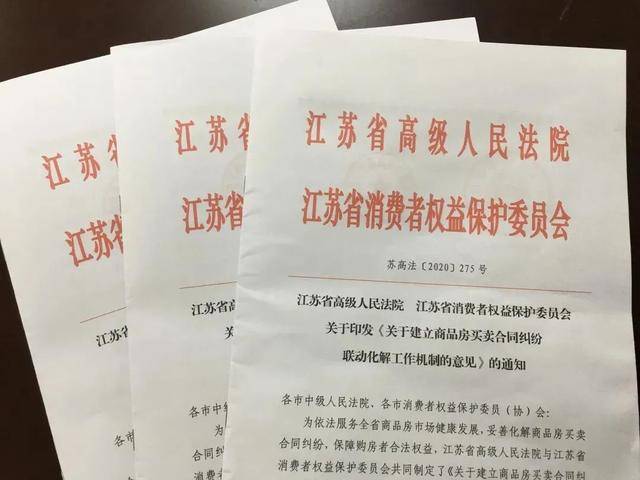 江苏省
江苏省
江苏省高
各市中级
为
合同纠纷
消费者权
江苏省
江苏省
江苏省高级
关
各市中级
为依
合同纠纷
消费者权
江苏省高级人民法院
江苏省消费者权益保护委员会
苏高法〔2020〕275号
江苏省高级人民法院 江苏省消费者权益保护委员会
关于印发《关于建立商品房买卖合同纠纷
联动化解工作机制的意见》的通知
各市中级人民法院、各市消费者权益保护委员(协)会:
为依法服务全省商品房市场健康发展,妥善化解商品房买卖
合同纠纷,保障购房者合法权益,江苏省高级人民法院与江苏省
消费者权益保护委员会共同制定了《关于建立商品房买卖合同纠